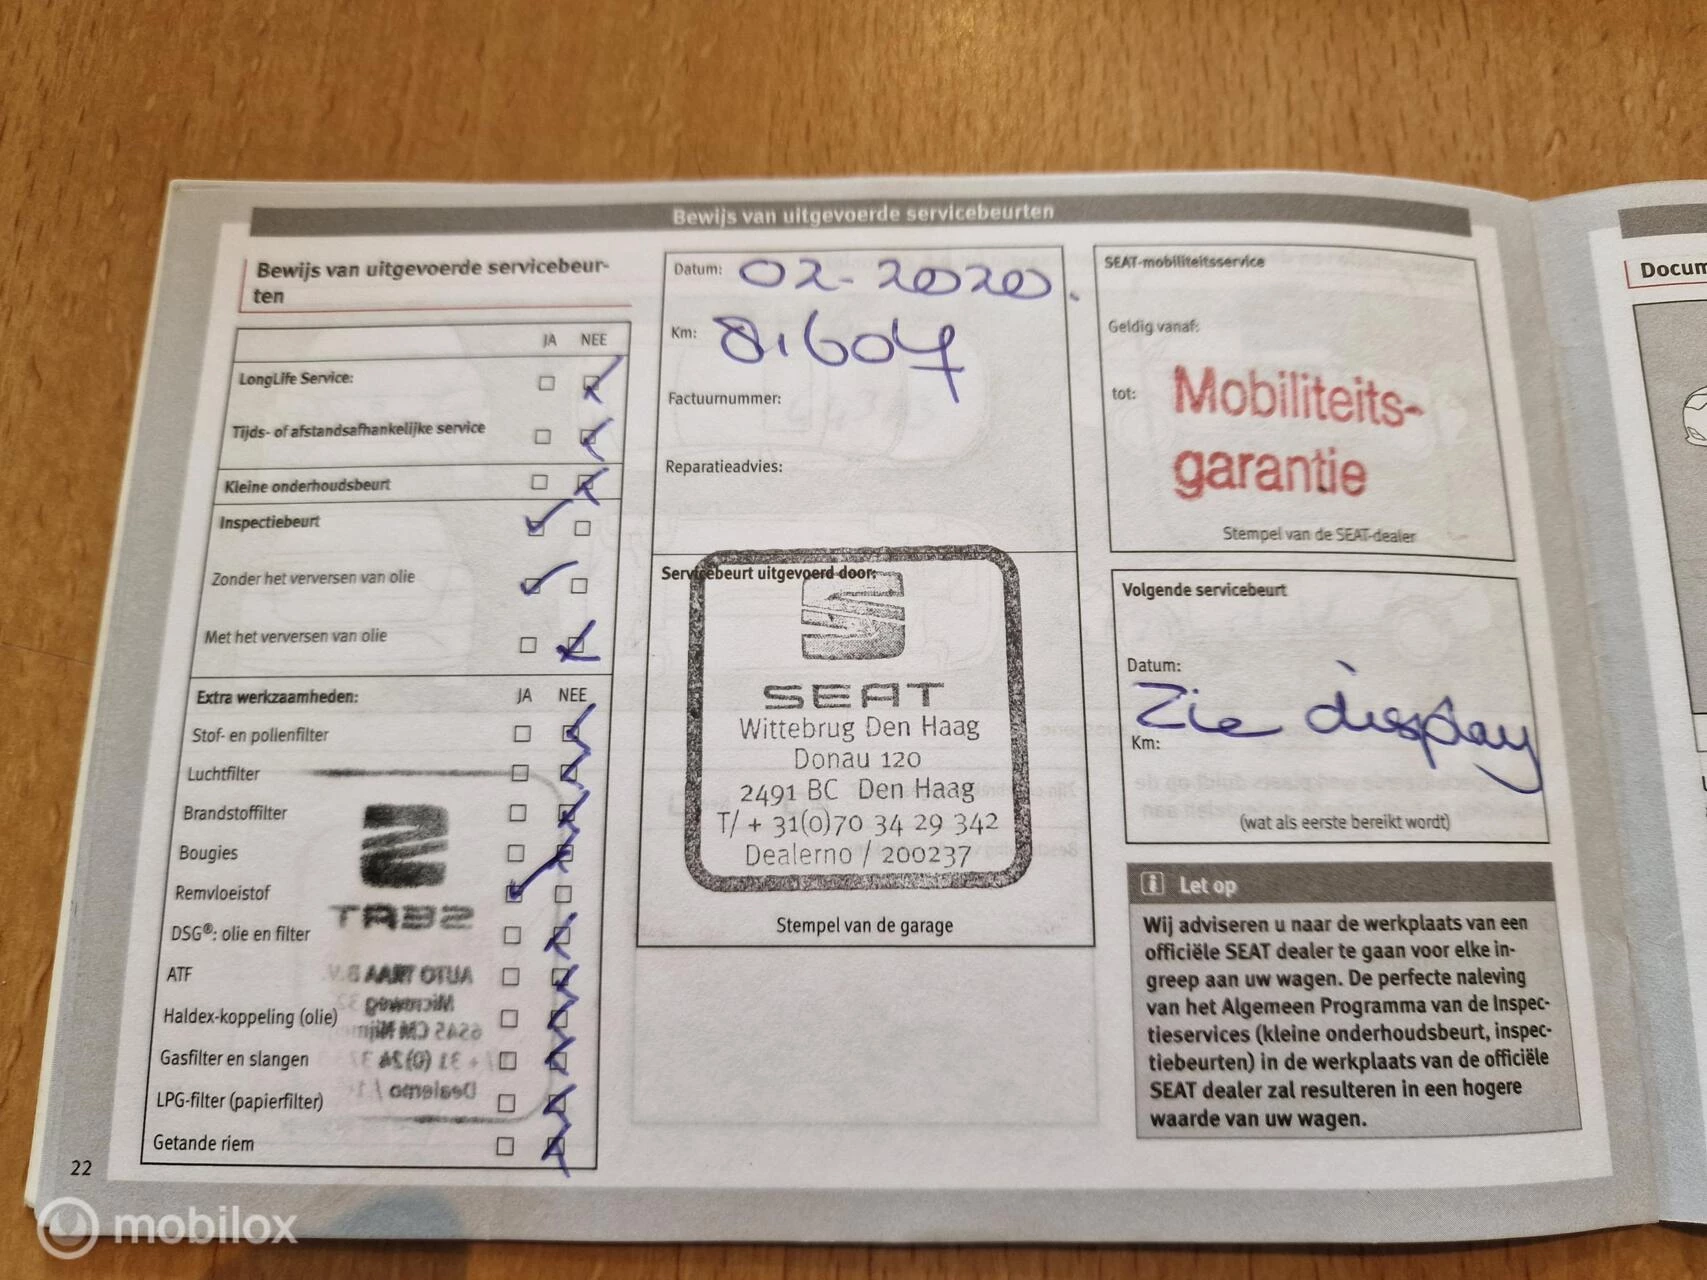 Bewijs van uitgevoerde servicebeurten
Bewijs van uitgevoerde servicebeur-
ten
JA NEE
LongLife Service:
Tijds- of afstandsafhankelijke service
Kleine onderhoudsbeurt
Inspectiebeurt
Zonder het verversen van olie
Met het verversen van olie
Extra werkzaamheden: JA NEE
Stof- en pollenfilter
Luchtfilter
Brandstoffilter
Bougies
Remvloeistof
DSG®: olie en filter
ATF
Haldex-koppeling (olie)
Gasfilter en slangen
LPG-filter (papierfilter)
Getande riem
22
Datum: 02-2020.
Km: 81604
Factuurnummer:
Reparatieadvies:
Servicebeurt uitgevoerd door:
SEAT
Wittebrug Den Haag
Donau 120
2491 BC Den Haag
T/ + 31(0)70 34 29 342
Dealerno / 200237
Stempel van de garage
SEAT-mobiliteitsservice
Geldig vanaf:
tot:
Mobiliteits-
garantie
Stempel van de SEAT-dealer
Volgende servicebeurt
Datum:
Zie display
Km:
(wat als eerste bereikt wordt)
Let op
Wij adviseren u naar de werkplaats van een
officiële SEAT dealer te gaan voor elke in-
greep aan uw wagen. De perfecte naleving
van het Algemeen Programma van de Inspec-
tieservices (kleine onderhoudsbeurt, inspec-
tiebeurten) in de werkplaats van de officiële
SEAT dealer zal resulteren in een hogere
waarde van uw wagen.
Docum
mobilox